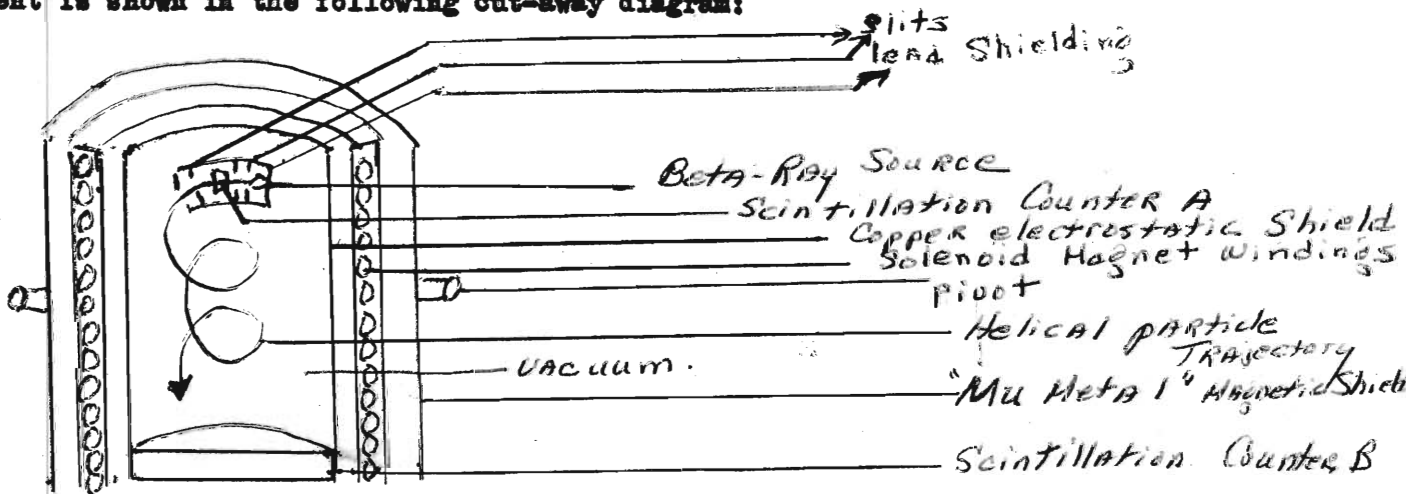 ent is shown in the following cut-away diagram:
slits
lead Shielding
Beta-Ray Source
Scintillation Counter A
Copper electrostatic Shield
Solenoid Magnet windings
pivot
Helical particle
Trajectory
VACUUM.
"Mu Metal" Magnetic Shiel
Scintillation Counter B